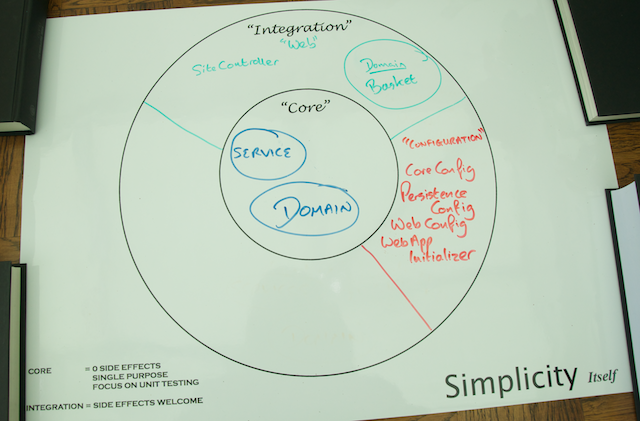 "Integration"
"Web"
SiteController
Domain
Basket
"Core"
SERVICE
DOMAIN
"CONFIGURATION"
CoreConfig
Persistence
Config
WebConfig
WebApp
Initializer
CORE = 0 SIDE EFFECTS
SINGLE PURPOSE
FOCUS ON UNIT TESTING
INTEGRATION = SIDE EFFECTS WELCOME
Simplicity Itself